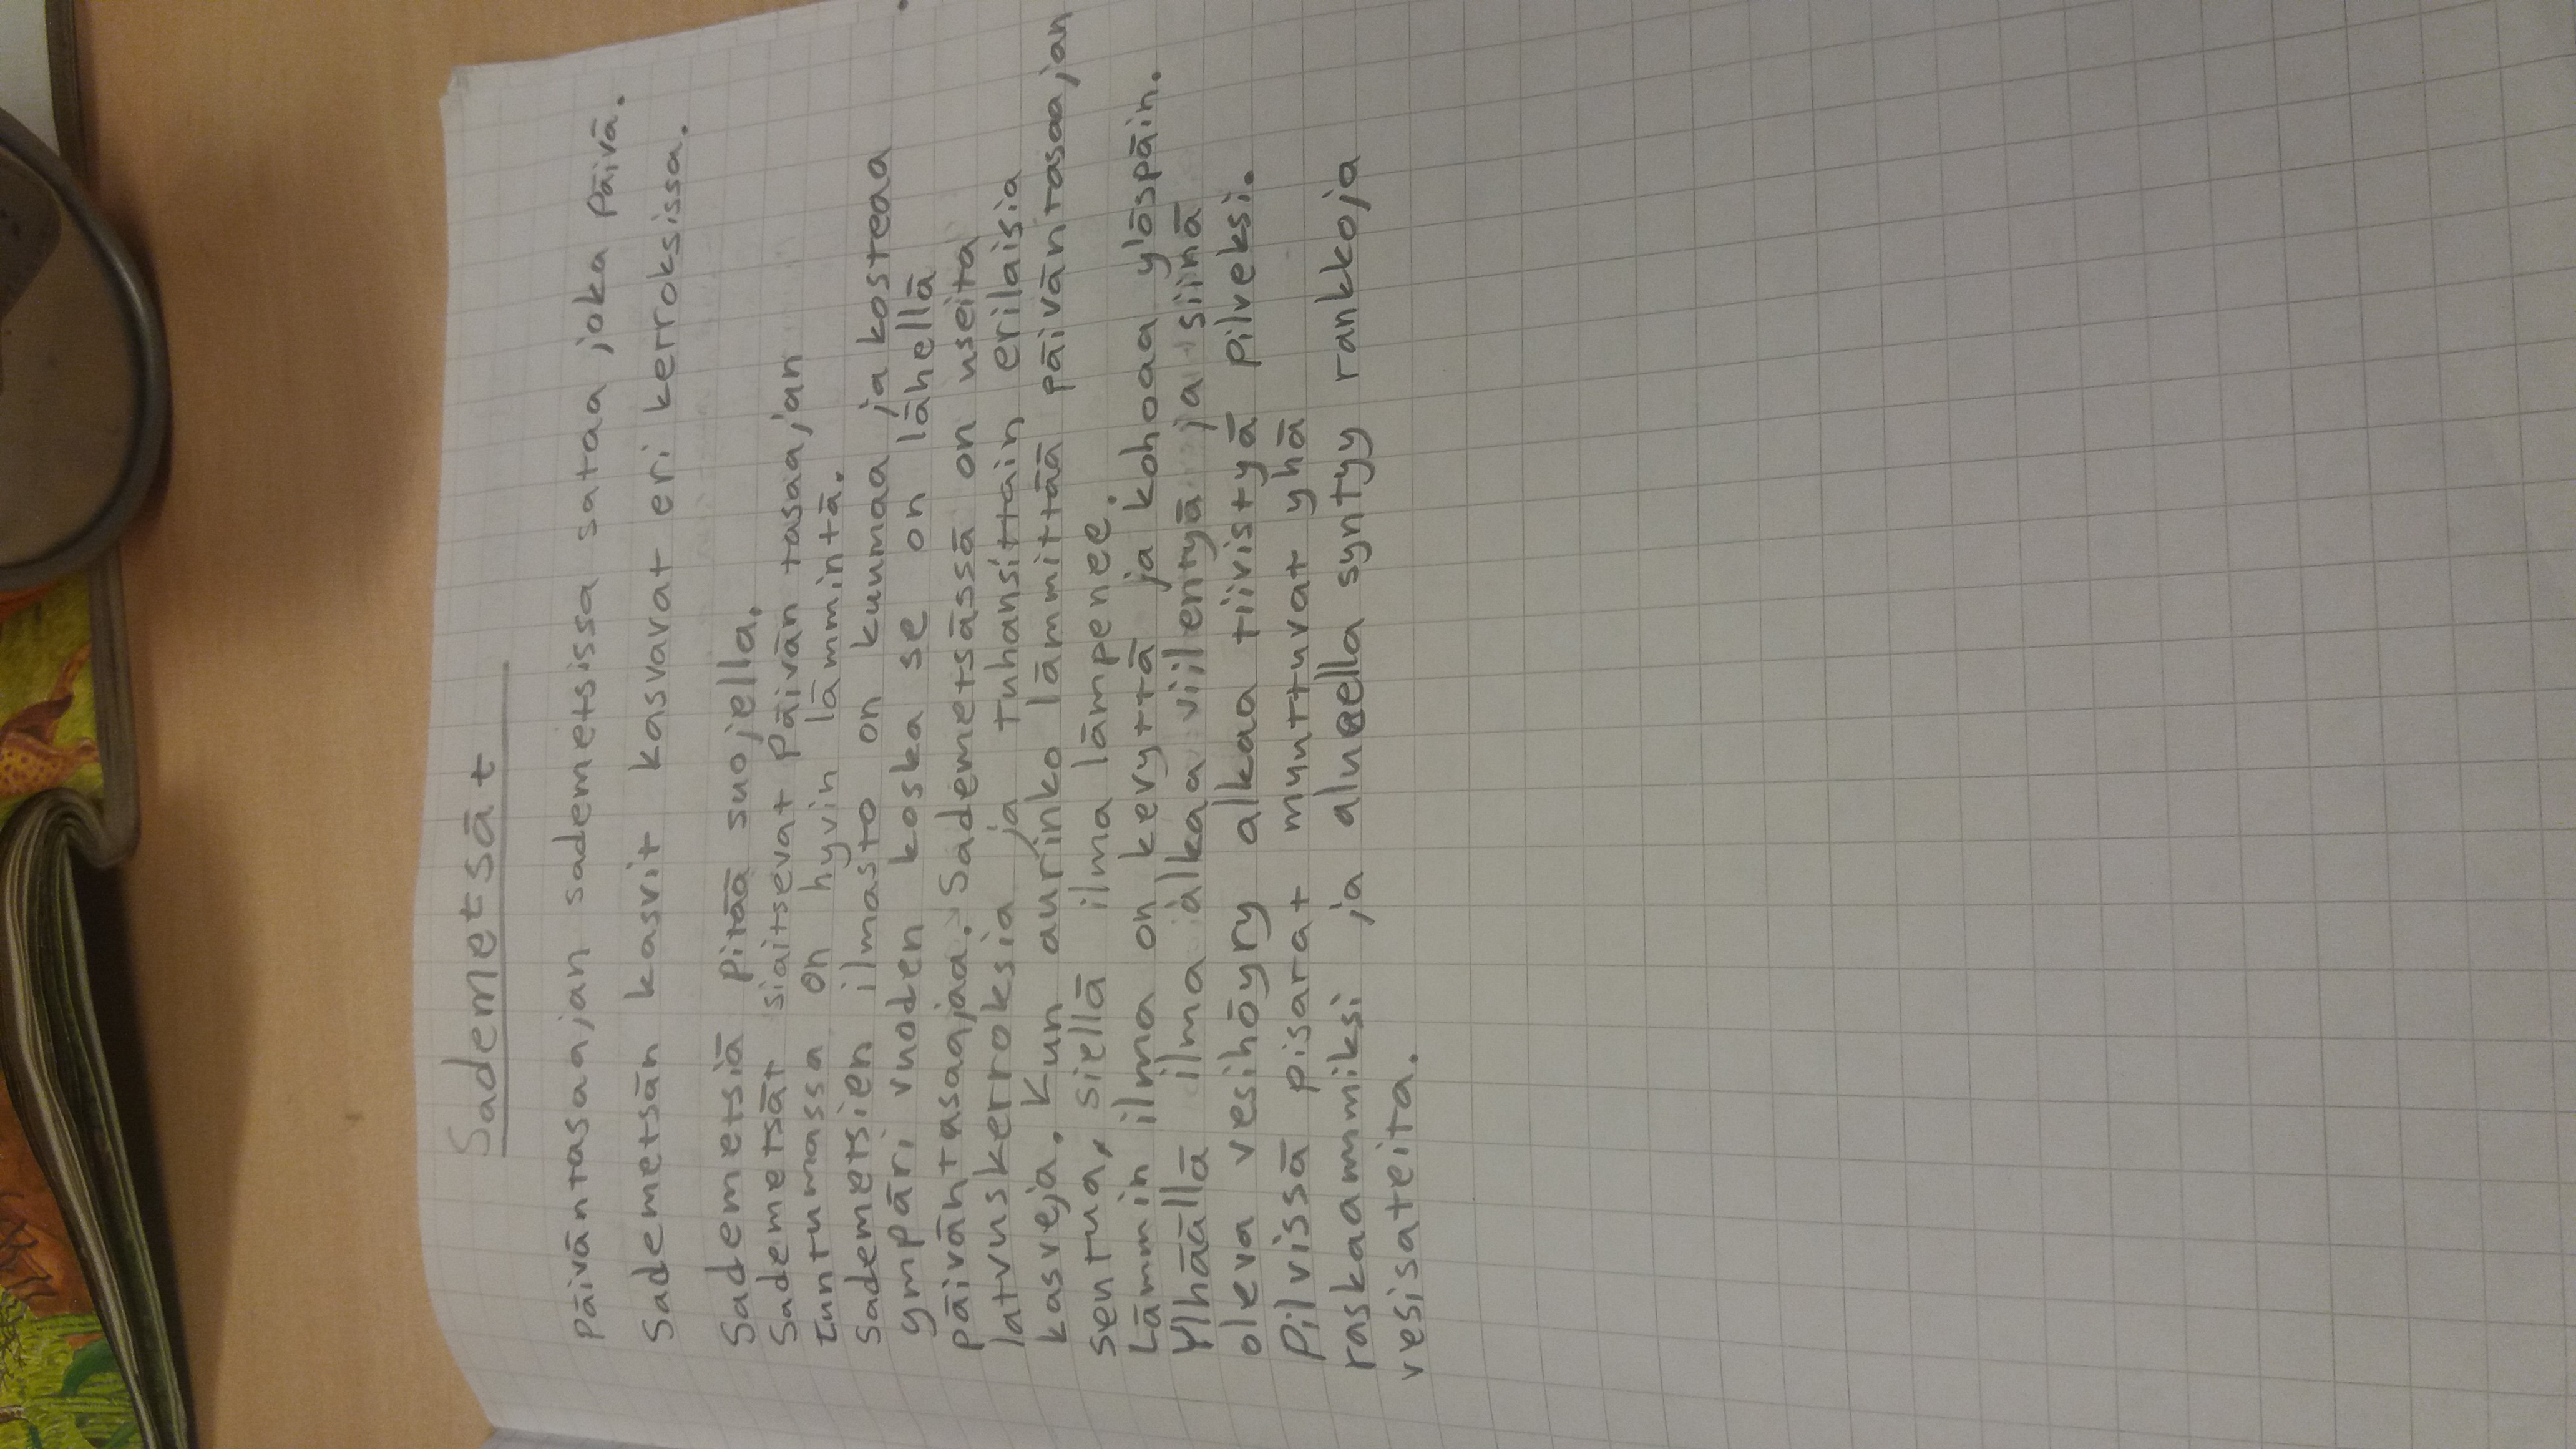 Sademetsät
Päiväntasaajan sademetsissa sataa joka päivä.
Sademetsän kasvit kasvavat eri kerroksissa.
Sademetsiä pitää suojella.
Sademetsät siaitsevat Päivän tasaajan
tuntumassa on hyvin lämmintä.
Sademetsien ilmasto on kuumaa ja kosteaa
ympäri vuoden koska se on lähellä
päiväntasaajaa. Sademetsässä on useita
latvuskerroksia ja tuhansittain erilaisia
kasveja. Kun aurinko lämmittää päiväntasaajan
seutua, siellä ilma lämpenee.
Lämmin ilma on kevyttä ja kohoaa ylöspäin.
Ylhäällä ilma alkaa viilentyä ja siinä
oleva vesihöyry alkaa tiivistyä pilveksi.
Pilvissä pisarat muuttuvat yhä
raskaammiksi ja aluella syntyy rankkoja
vesisateita.